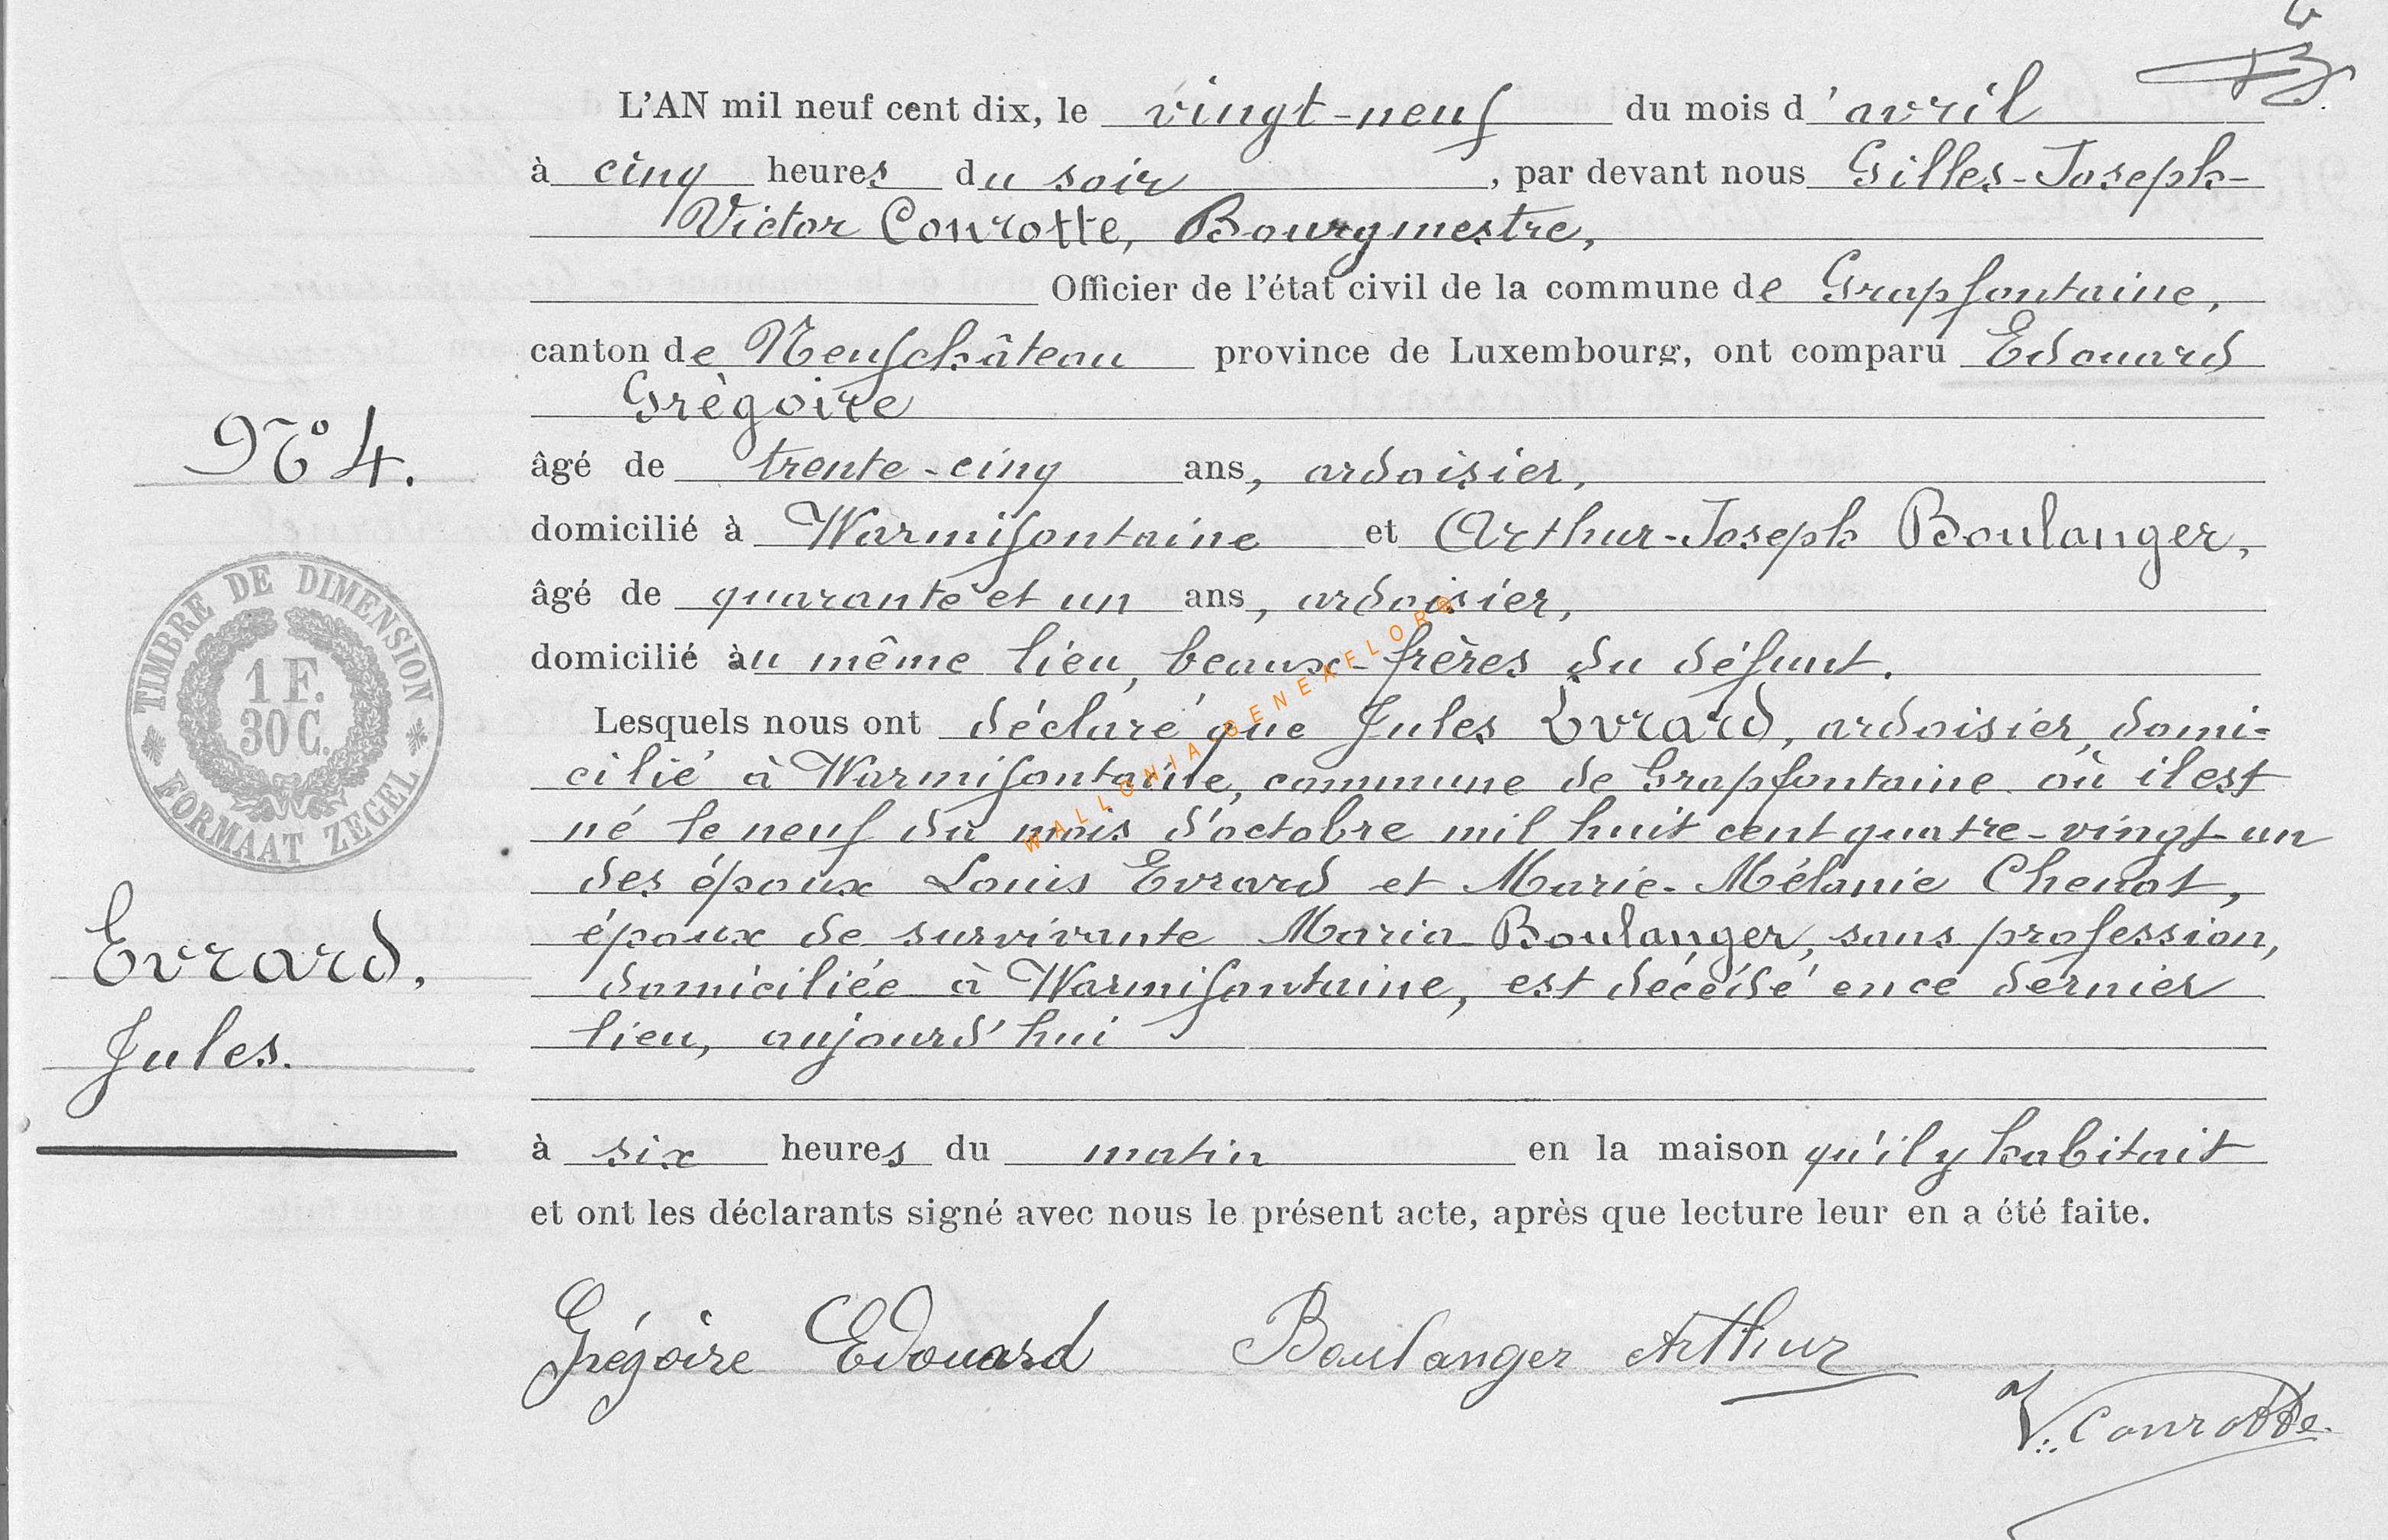 L'AN mil neuf cent dix, le vingt-neuf du mois d'avril
à cinq heures du soir, par devant nous Gilles-Joseph-
Victor Conrotte, Bourgmestre,
Officier de l'état civil de la commune de Grapfontaine,
canton de Neufchâteau province de Luxembourg, ont comparu Edouard
Grègoire
âgé de trente-cinq ans, ardoisier,
domicilié à Warmifontaine et Arthur-Joseph Boulanger,
âgé de quarante et un ans, ardoisier,
domicilié au même lieu, beaux-frères du défunt.
Lesquels nous ont déclaré que Jules Evrard, ardoisier, domi-
cilié à Warmifontaine, commune de Grapfontaine où il est
né le neuf du mois d'octobre mil huit cent quatre-vingt-un
des époux Louis Evrard et Marie-Mélanie Chenot,
époux de survivante Maria Boulanger, sans profession,
domiciliée à Warmifontaine, est décédé en ce dernier
lieu, aujourd'hui
à six heures du matin en la maison qu'il y habitait
et ont les déclarants signé avec nous le présent acte, après que lecture leur en a été faite.
Grégoire Edouard Boulanger Arthur
V. Conrotte
No 4.
TIMBRE DE DIMENSION
1 F.
30 C.
FORMAAT ZEGEL
Evrard,
Jules.
WALLONIA GENEXFLOR©